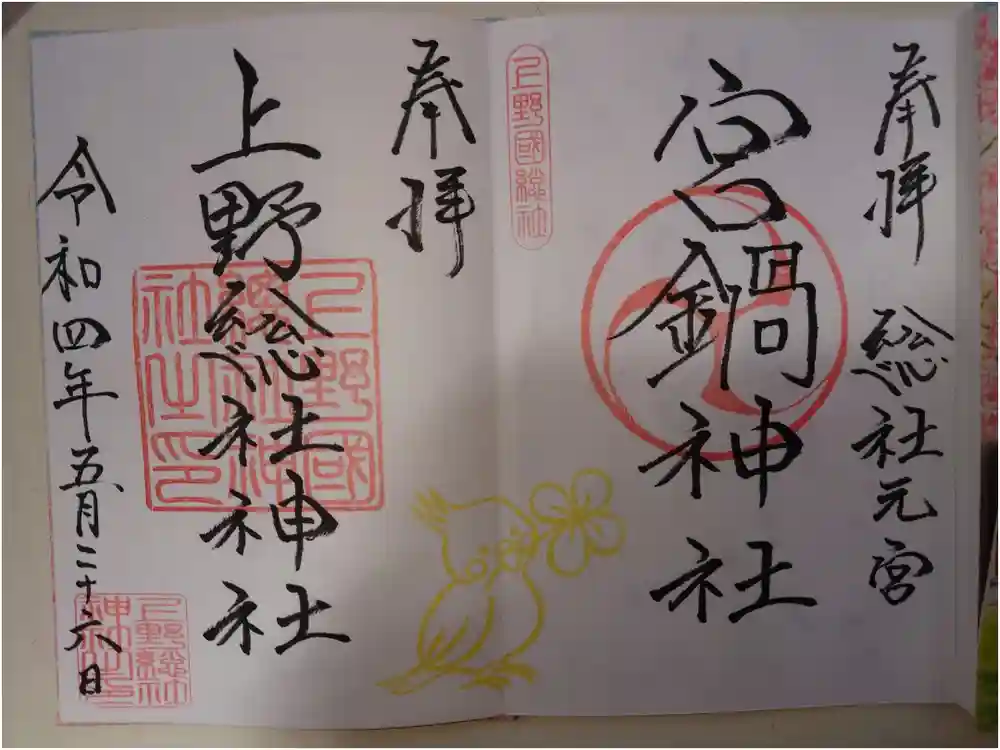 奉拝 総社元宮
宮鍋神社
上野國総社
奉拝
上野総社神社
上野國總社神社之印
令和四年五月二十六日
上野総社神社